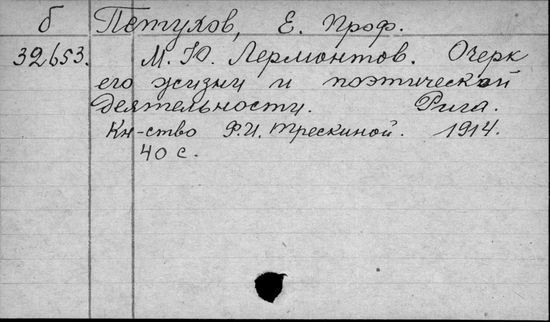 б Петухов, Е. Проф.
32653. М. Ю. Лермонтов. Очерк
его жизни и поэтической
деятельности. Рига.
Кн-ство Ф.И. Трескиной. 1914.
40 с.